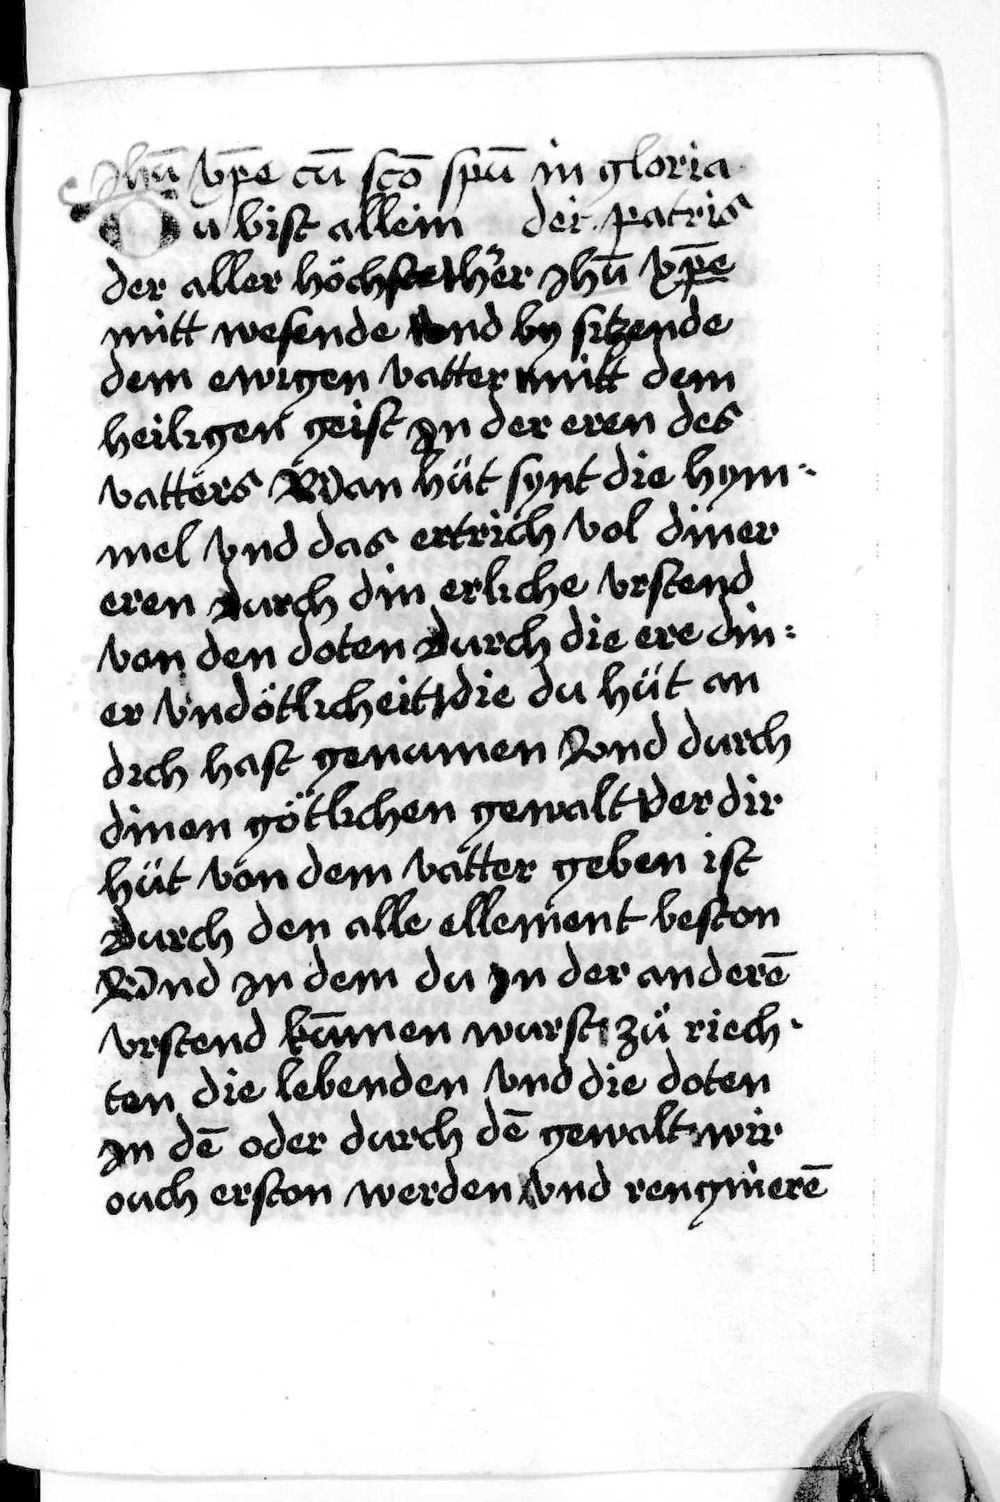 Jhū xp̄e cū sc̄o spū in gloria
Du bist allein dei patris
der aller höchste her Jhū xp̄e
mitt wesende vnd by sitzende
dem ewigen vatter mitt dem
heiligen geist Jn der eren des
vatters Wan hüt synt die hym-
mel vnd das ertrich vol diner
eren Durch din erliche vrstend
von den doten Durch die ere din-
er vndötlicheit die du hüt an
dich hast genumen Vnd durch
dinen götlichen gewalt Der dir
hüt von dem vatter geben ist
Durch den alle ellement beston
Vnd Jn dem du Jn der anderē
vrstend kūmen wurst zü riech-
ten die lebenden vnd die doten
Jn dē oder durch dē gewalt wir
ouch erston werden vnd rengnierē